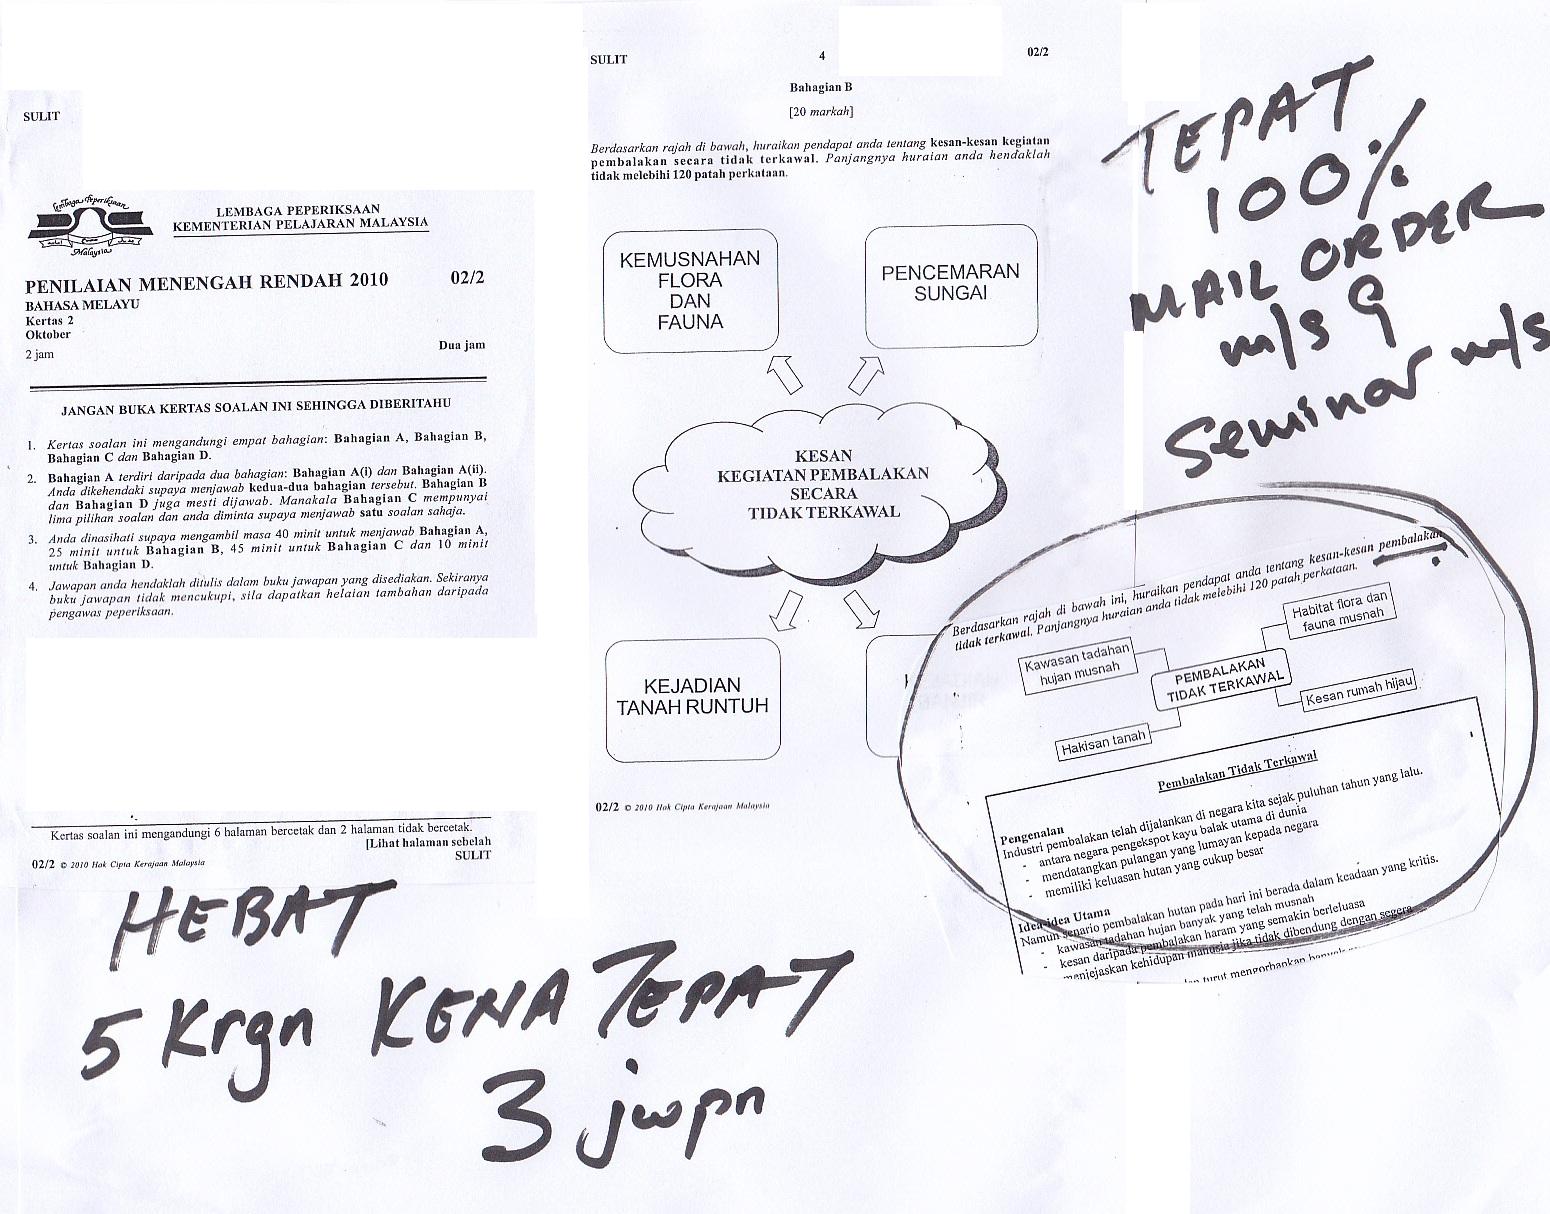 SULIT
Lembaga Peperiksaan
Malaysia
LEMBAGA PEPERIKSAAN
KEMENTERIAN PELAJARAN MALAYSIA
PENILAIAN MENENGAH RENDAH 2010 02/2
BAHASA MELAYU
Kertas 2
Oktober
2 jam Dua jam
JANGAN BUKA KERTAS SOALAN INI SEHINGGA DIBERITAHU
1. Kertas soalan ini mengandungi empat bahagian: Bahagian A, Bahagian B,
Bahagian C dan Bahagian D.
2. Bahagian A terdiri daripada dua bahagian: Bahagian A(i) dan Bahagian A(ii).
Anda dikehendaki supaya menjawab kedua-dua bahagian tersebut. Bahagian B
dan Bahagian D juga mesti dijawab. Manakala Bahagian C mempunyai
lima pilihan soalan dan anda diminta supaya menjawab satu soalan sahaja.
3. Anda dinasihati supaya mengambil masa 40 minit untuk menjawab Bahagian A,
25 minit untuk Bahagian B, 45 minit untuk Bahagian C dan 10 minit
untuk Bahagian D.
4. Jawapan anda hendaklah ditulis dalam buku jawapan yang disediakan. Sekiranya
buku jawapan tidak mencukupi, sila dapatkan helaian tambahan daripada
pengawas peperiksaan.
Kertas soalan ini mengandungi 6 halaman bercetak dan 2 halaman tidak bercetak.
[Lihat halaman sebelah
02/2 © 2010 Hak Cipta Kerajaan Malaysia SULIT
SULIT 4 02/2
Bahagian B
[20 markah]
Berdasarkan rajah di bawah, huraikan pendapat anda tentang kesan-kesan kegiatan
pembalakan secara tidak terkawal. Panjangnya huraian anda hendaklah
tidak melebihi 120 patah perkataan.
KEMUSNAHAN
FLORA
DAN
FAUNA
PENCEMARAN
SUNGAI
KESAN
KEGIATAN PEMBALAKAN
SECARA
TIDAK TERKAWAL
KEJADIAN
TANAH RUNTUH
02/2 © 2010 Hak Cipta Kerajaan Malaysia
TEPAT
100%
MAIL ORDER
m/s 9
Seminar m/s
Berdasarkan rajah di bawah ini, huraikan pendapat anda tentang kesan-kesan pembalakan
tidak terkawal. Panjangnya huraian anda tidak melebihi 120 patah perkataan.
Kawasan tadahan
hujan musnah
Habitat flora dan
fauna musnah
PEMBALAKAN
TIDAK TERKAWAL
Kesan rumah hijau
Hakisan tanah
Pembalakan Tidak Terkawal
Pengenalan
Industri pembalakan telah dijalankan di negara kita sejak puluhan tahun yang lalu.
- antara negara pengekspot kayu balak utama di dunia
- mendatangkan pulangan yang lumayan kepada negara
- memiliki keluasan hutan yang cukup besar
Idea-idea Utama
Namun senario pembalakan hutan pada hari ini berada dalam keadaan yang kritis.
- kawasan tadahan hujan banyak yang telah musnah
- kesan daripada pembalakan haram yang semakin berleluasa
menjejaskan kehidupan manusia jika tidak dibendung dengan segera
turut mengorbankan
HEBAT
5 Krgn KENA TEPAT
3 jwpn